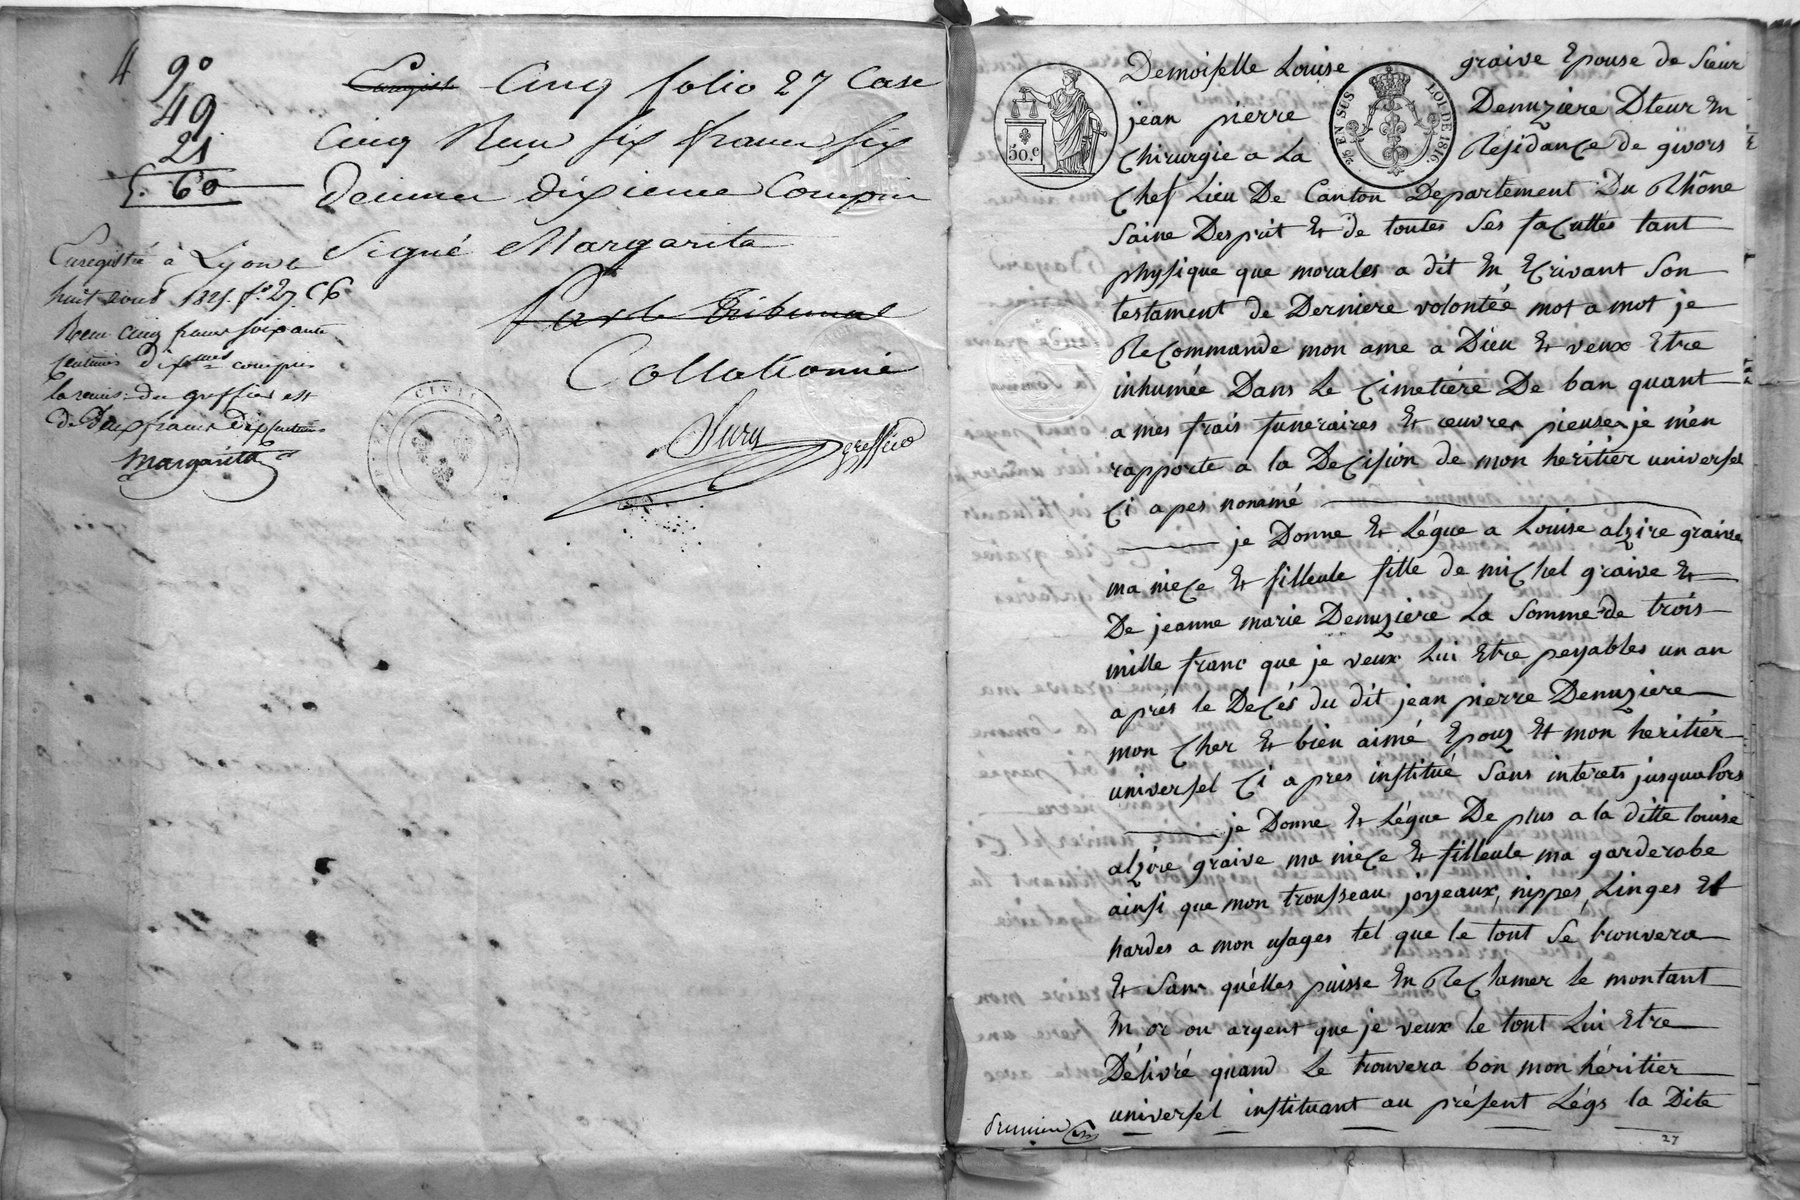 4
9°
49
21
5. 60
Enregist Cinq folio 27 Case
Cinq Reçu six francs six
Decimes dixieme Compris
Signé Margarita
Par le Tribunal
Collationné
greffier
Enregistré à Lyon le
huit aout 1821. f° 27 C6
Recu cinq francs soixante
centimes dixmes compris
la remise du greffier est
de Deux francs Dix Centimes
Margarita
TRIBUNAL CIVIL DE
50.c
25 EN SUS
LOI DE 1816.
Demoiselle Louise graive Epouse de Sieur
jean pierre Denuziere Dteur En
Chirurgie a La Résidance de givors
Chef Lieu De Canton Departement Du Rhône
Saine Desprit Et de toutes Ses facultes tant
physique que morales a dit En Ecrivant Son
testament de Derniere volontée mot a mot je
Recommande mon ame a Dieu Et veux Etre
inhumée Dans Le Cimetiére De ban quant
a mes frais funeraires Et œuvres pieuses je m'en
rapporte a la Decision de mon héritier universel
Ci apes nonamé
je Donne Et Légue a Louise alzire graive
ma niece Et filleule fille de miChel graive Et
De jeanne marie Denuziere La Somme de trois
mille franc que je veux Lui Etre payables un an
aprés le Decés du dit jean pierre Denuziere
mon Cher Et bien aimé Epouz Et mon heritiér
universel Ci apres institué Sans interets jusqualors
je Donne Et Légue De plus a la ditte louise
alzire graive ma niece Et filleule ma garderobe
ainsi que mon trousseau joyeaux, nippes, Linges Et
hardes a mon usages tel que le tout Se trouvera
Et Sans quélles puisse En ReClamer le montant
En or ou argent que je veux le tout Lui Etre
Délivré quand Le trouvera bon mon héritier
universel instituant au présent Légs la Dite
27